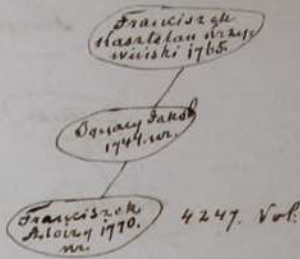 Franciszek
kasztelan brzez
wiński 1765.
Ignacy Jakob
1747. ur.
Franciszek
Alojzy 1770.
ur.
4247. Vol: